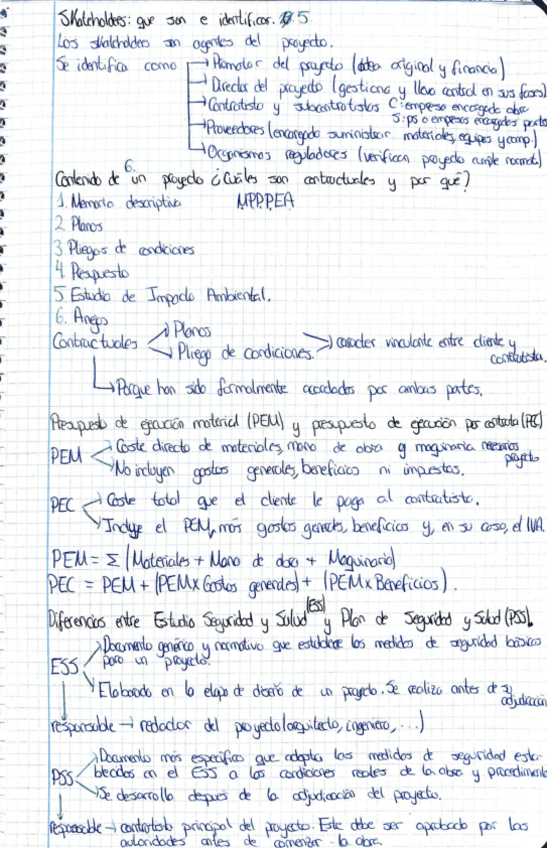 Skateholders: que son e identificar. 5
Los skateholders son agentes del proyecto.
Se identifica como → Promotor del proyecto (idea original y financia)
→ Director del proyecto (gestiona y lleva control en sus fases)
→ Contratista y subcontratistas C: empresa encargada obra
S: ps o empresas encargadas parte
→ Proveedores (encargado suministrar materiales, equipos y comp.)
→ Organismos reguladores (verifican proyecto cumple normat.)
6.
Contenido de un proyecto ¿Cuáles son contractuales y por qué?
1. Memoria descriptiva MPPPEA
2. Planos
3. Pliegos de condiciones
4. Presupuesto
5. Estudio de Impacto Ambiental.
6. Anejo
Contractuales → Planos
→ Pliego de condiciones. → caracter vinculante entre cliente y
contratista.
→ Porque han sido formalmente acordados por ambas partes.
Presupuesto de ejecución material (PEM) y presupuesto de ejecución por contrata (PEC)
PEM → Coste directo de materiales, mano de obra y maquinaria necesarios
proyecto
→ No incluyen gastos generales, beneficios ni impuestos.
PEC → Coste total que el cliente le paga al contratista.
→ Incluye el PEM, más gastos generales, beneficios y, en su caso, el IVA
PEM = Σ (Materiales + Mano de obra + Maquinaria)
PEC = PEM + (PEM x Gastos generales) + (PEM x Beneficios).
Diferencias entre Estudio Seguridad y Salud (ESS) y Plan de Seguridad y Salud (PSS).
ESS → Documento genérico y normativo que establece las medidas de seguridad básicas
para un proyecto.
→ Elaborado en la etapa de diseño de un proyecto. Se realiza antes de
adjudicación
responsable → redactor del proyecto (arquitecto, ingeniero, ...)
PSS → Documento más específico que adapta las medidas de seguridad esta-
blecidas en el ESS a las condiciones reales de la obra y procedimiento
→ Se desarrolla después de la adjudicación del proyecto.
responsable → contratista principal del proyecto. Este debe ser aprobado por las
autoridades antes de comenzar la obra.